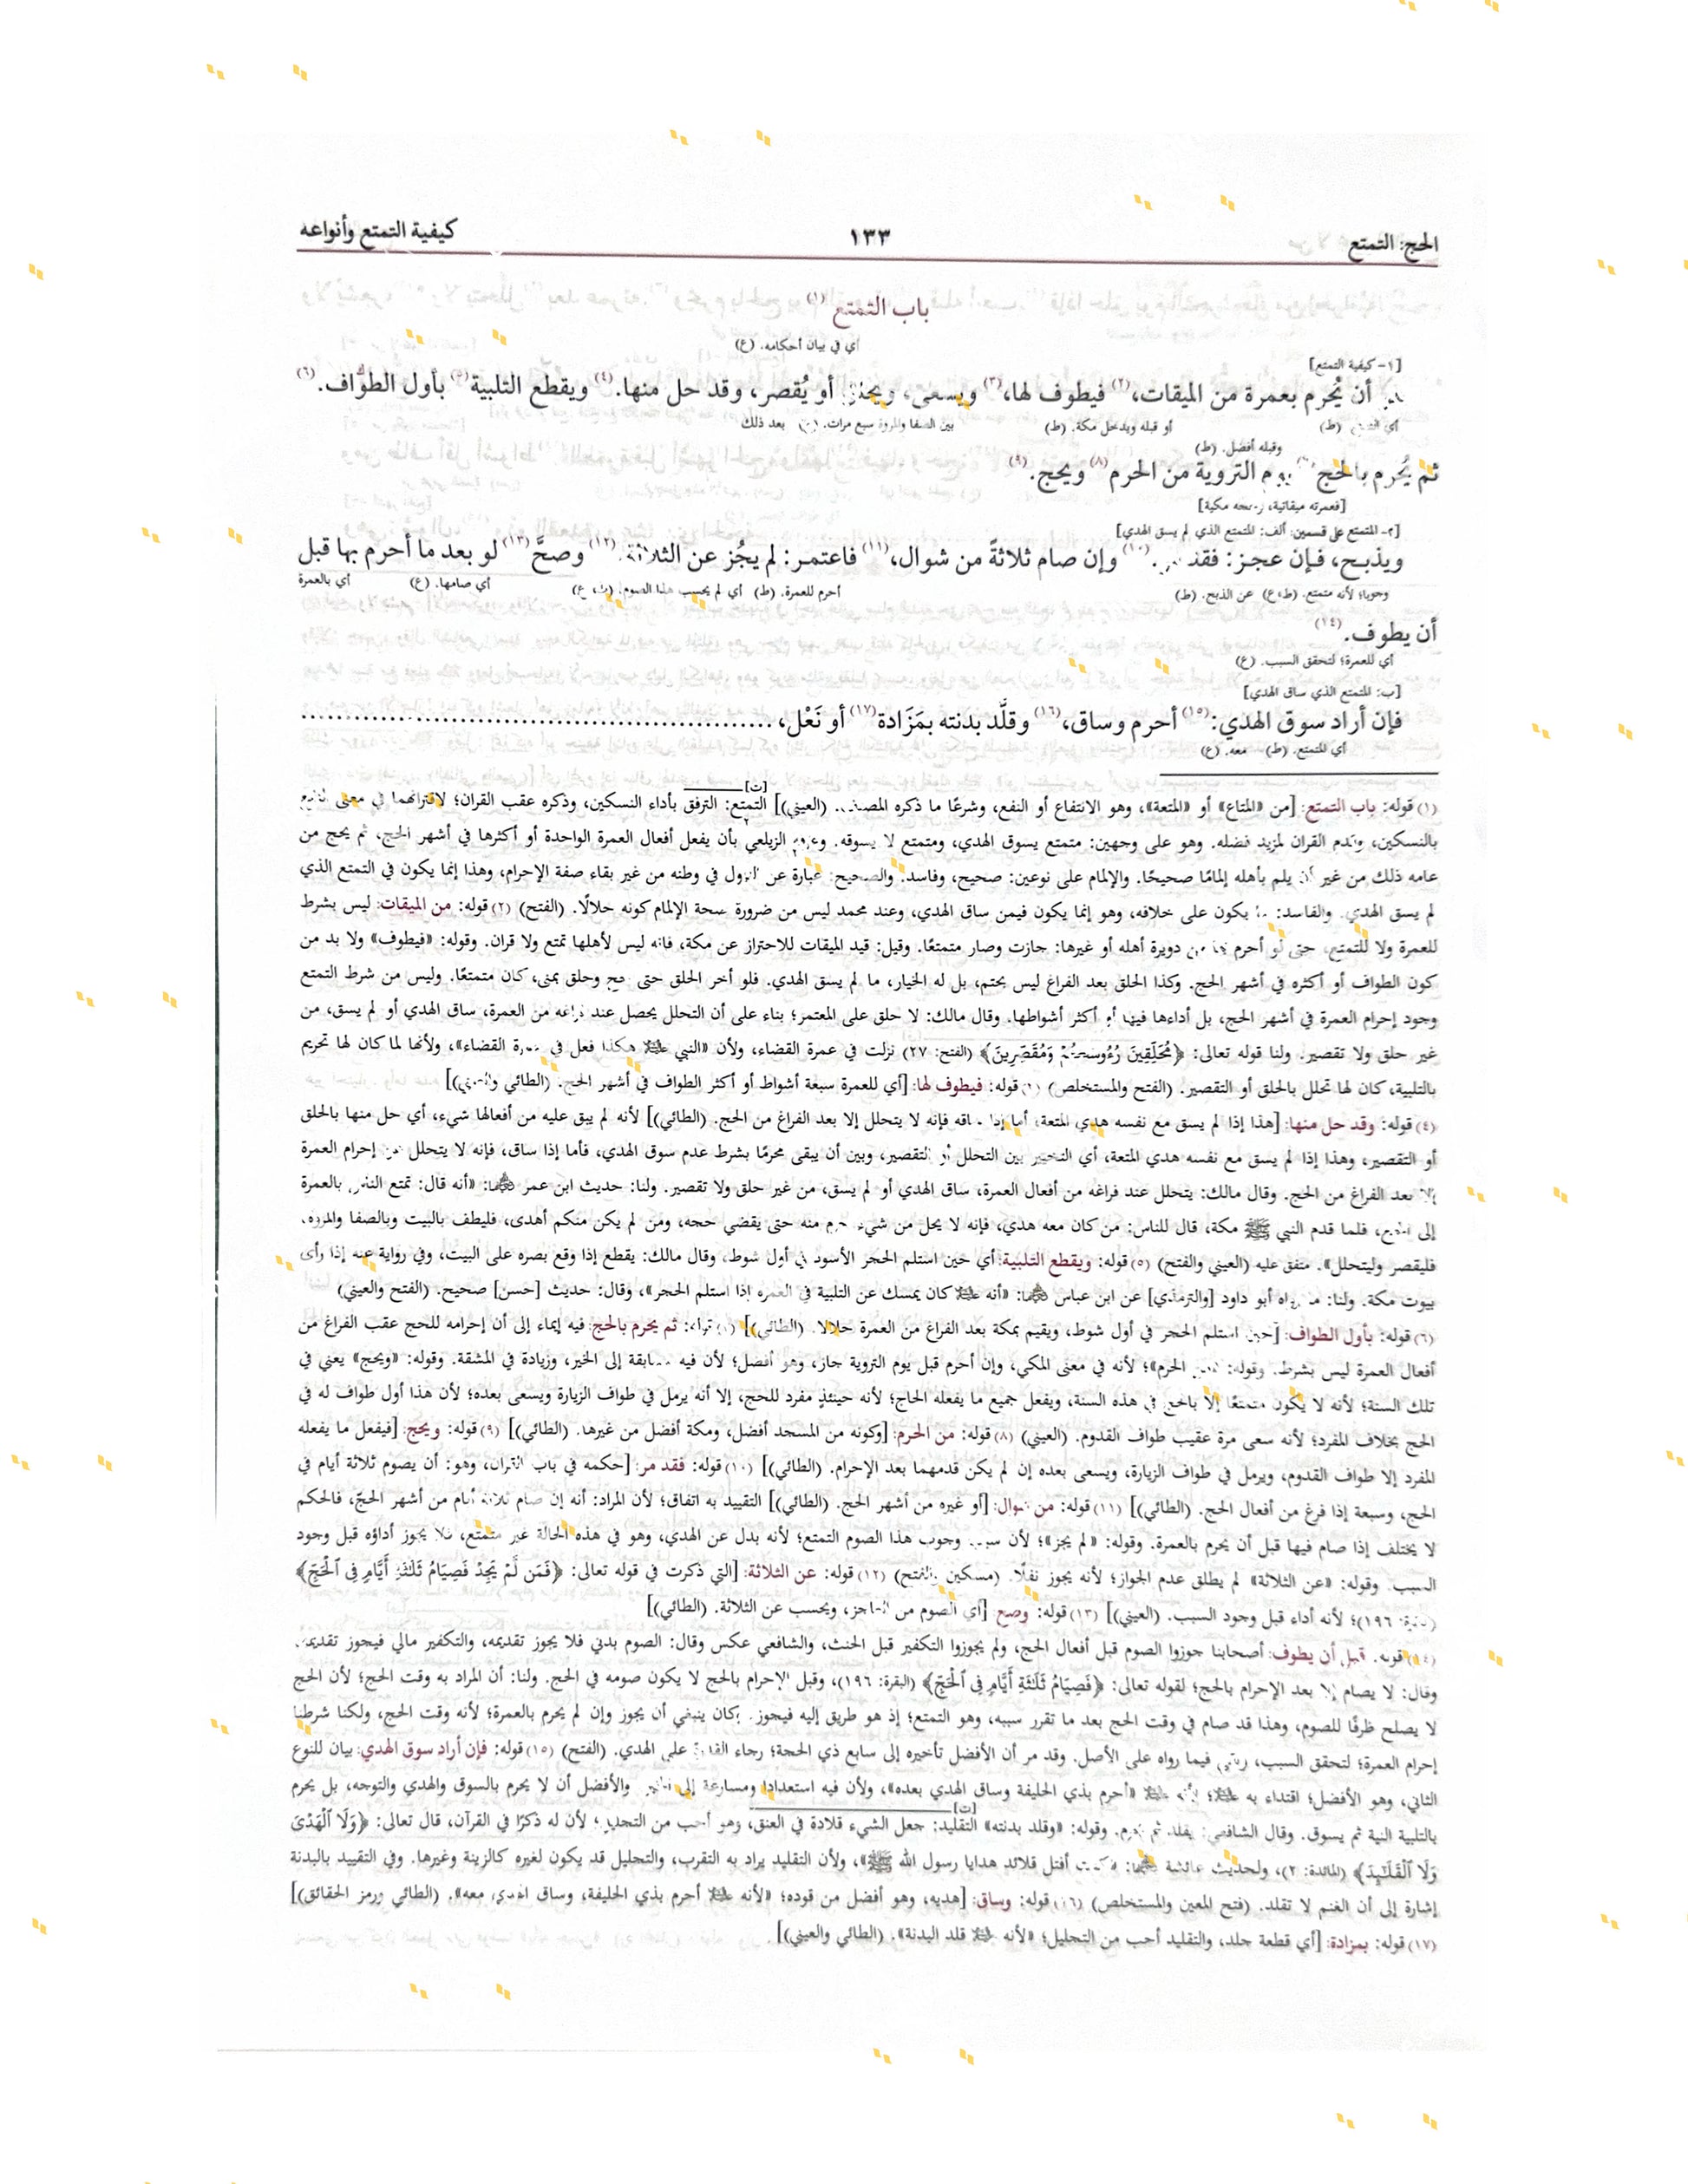 الحج: التمتع ١٣٣ كيفية التمتع وأنواعه
باب التمتع (١)
أي في بيان أحكامه. (ع)
[١- كيفية التمتع]
أن يُحرم بعمرة من الميقات، (٢) فيطوف لها، (٣) ويسعى، ويحلق أو يُقصر، وقد حل منها. (٤) ويقطع التلبية (٥) بأول الطواف. (٦)
(ط) أو قبله ويدخل مكة. (ط) بين الصفا والمروة سبع مرات. بعد ذلك
وقبله أفضل. (ط)
ثم يُحرم بالحج يوم التروية من الحرم (٨) ويحج. (٩)
[فعمرته ميقاتية، وحجه مكية]
[٢- المتمتع على قسمين: ألف: المتمتع الذي لم يسق الهدي]
ويذبح، فإن عجز: فقد مر. (١٠) وإن صام ثلاثةً من شوال، (١١) فاعتمر: لم يجُز عن الثلاثة. (١٢) وصحَّ (١٣) لو بعد ما أحرم بها قبل
وجوبا؛ لأنه متمتع. (ط، ع) عن الذبح. (ط) أحرم للعمرة. (ط) أي لم يحسب هذا الصوم. (ط، ع) أي صامها. (ع) أي بالعمرة
أن يطوف. (١٤)
أي للعمرة؛ لتحقق السبب. (ع)
[ب: المتمتع الذي ساق الهدي]
فإن أراد سوق الهدي: (١٥) أحرم وساق، (١٦) وقلَّد بدنته بمَزَادة (١٧) أو نَعْل، ......
أي المتمتع. (ط) معه. (ع)
(١) قوله: باب التمتع: [من «المتاع» أو «المتعة»، وهو الانتفاع أو النفع، وشرعًا ما ذكره المصنف. (العيني)] التمتع: الترفق بأداء النسكين، وذكره عقب القران؛ لاقترانهما في معنى
بالنسكين، وقدم القران لمزيد فضله. وهو على وجهين: متمتع يسوق الهدي، ومتمتع لا يسوقه. الزيلعي بأن يفعل أفعال العمرة الواحدة أو أكثرها في أشهر الحج، ثم يحج من
عامه ذلك من غير أن يلم بأهله إلمامًا صحيحًا. والإلمام على نوعين: صحيح، وفاسد. والصحيح: عبارة عن النزول في وطنه من غير بقاء صفة الإحرام، وهذا إنما يكون في التمتع الذي
لم يسق الهدي. والفاسد: ما يكون على خلافه، وهو إنما يكون فيمن ساق الهدي، وعند محمد ليس من ضرورة صحة الإلمام كونه حلالًا. (الفتح) (٢) قوله: من الميقات: ليس بشرط
للعمرة ولا للتمتع، حتى لو أحرم بها من دويرة أهله أو غيرها: جازت وصار متمتعًا. وقيل: قيد الميقات للاحتراز عن مكة، فإنه ليس لأهلها تمتع ولا قران. وقوله: «فيطوف» ولا بد من
كون الطواف أو أكثره في أشهر الحج. وكذا الحلق بعد الفراغ ليس بحتم، بل له الخيار، ما لم يسق الهدي. فلو أخر الحلق حتى حج وحلق بمنى، كان متمتعًا. وليس من شرط التمتع
وجود إحرام العمرة في أشهر الحج، بل أداءها فيها أو أكثر أشواطها. وقال مالك: لا حلق على المعتمر؛ بناء على أن التحلل يحصل عند فراغه من العمرة، ساق الهدي أو لم يسق، من
غير حلق ولا تقصير. ولنا قوله تعالى: ﴿مُحَلِّقِينَ رُءُوسَكُمْ وَمُقَصِّرِينَ﴾ (الفتح: ٢٧) نزلت في عمرة القضاء، ولأن «النبي ﷺ هكذا فعل في عمرة القضاء»، ولأنها لما كان لها تحريم
بالتلبية، كان لها تحلل بالحلق أو التقصير. (الفتح والمستخلص) قوله: فيطوف لها: [أي للعمرة سبعة أشواط أو أكثر الطواف في أشهر الحج. (الطائي والعيني)]
(٤) قوله: وقد حل منها: [هذا إذا لم يسق مع نفسه هدي المتعة، أما إذا ساقه فإنه لا يتحلل إلا بعد الفراغ من الحج. (الطائي)] لأنه لم يبق عليه من أفعالها شيء، أي حل منها بالحلق
أو التقصير، وهذا إذا لم يسق مع نفسه هدي المتعة، أي التخيير بين التحلل أو التقصير، وبين أن يبقى محرمًا بشرط عدم سوق الهدي، فأما إذا ساق، فإنه لا يتحلل من إحرام العمرة
إلا بعد الفراغ من الحج. وقال مالك: يتحلل عند فراغه من أفعال العمرة، ساق الهدي أو لم يسق، من غير حلق ولا تقصير. ولنا: حديث ابن عمر: «أنه قال: تمتع الناس بالعمرة
إلى الحج، فلما قدم النبي ﷺ مكة، قال للناس: من كان معه هدي، فإنه لا يحل من شيء حرم منه حتى يقضي حجه، ومن لم يكن منكم أهدى، فليطف بالبيت وبالصفا والمروة،
فليقصر وليتحلل». متفق عليه (العيني والفتح) (٥) قوله: ويقطع التلبية: أي حين استلم الحجر الأسود في أول شوط، وقال مالك: يقطع إذا وقع بصره على البيت، وفي رواية عنه إذا رأى
بيوت مكة. ولنا: ما رواه أبو داود [والترمذي] عن ابن عباس: «أنه ﷺ كان يمسك عن التلبية في العمرة إذا استلم الحجر»، وقال: حديث [حسن] صحيح. (الفتح والعيني)
(٦) قوله: بأول الطواف: [حين استلم الحجر في أول شوط، ويقيم بمكة بعد الفراغ من العمرة حلالا. (الطائي)] قوله: ثم يحرم بالحج: فيه إيماء إلى أن إحرامه للحج عقب الفراغ من
أفعال العمرة ليس بشرط. وقوله: «من الحرم»؛ لأنه في معنى المكي، وإن أحرم قبل يوم التروية جاز، وهو أفضل؛ لأن فيه مسابقة إلى الخير، وزيادة في المشقة. وقوله: «ويحج» يعني في
تلك السنة؛ لأنه لا يكون متمتعًا إلا بالحج في هذه السنة، ويفعل جميع ما يفعله الحاج؛ لأنه حينئذٍ مفرد للحج، إلا أنه يرمل في طواف الزيارة ويسعى بعده؛ لأن هذا أول طواف له في
الحج بخلاف المفرد؛ لأنه سعى مرة عقيب طواف القدوم. (العيني) (٨) قوله: من الحرم: [وكونه من المسجد أفضل، ومكة أفضل من غيرها. (الطائي)] (٩) قوله: ويحج: [فيفعل ما يفعله
المفرد إلا طواف القدوم، ويرمل في طواف الزيارة، ويسعى بعده إن لم يكن قدمهما بعد الإحرام. (الطائي)] (١٠) قوله: فقد مر: [حكمه في باب القران، وهو: أن يصوم ثلاثة أيام في
الحج، وسبعة إذا فرغ من أفعال الحج. (الطائي)] (١١) قوله: من شوال: [أو غيره من أشهر الحج. (الطائي)] التقييد به اتفاق؛ لأن المراد: أنه إن صام ثلاثة أيام من أشهر الحجّ، فالحكم
لا يختلف إذا صام فيها قبل أن يحرم بالعمرة. وقوله: «لم يجز»؛ لأن سبب وجوب هذا الصوم التمتع؛ لأنه بدل عن الهدي، وهو في هذه الحالة غير متمتع، فلا يجوز أداؤه قبل وجود
السبب. وقوله: «عن الثلاثة» لم يطلق عدم الجواز؛ لأنه يجوز نفلًا. (مسكين والفتح) (١٢) قوله: عن الثلاثة: [التي ذكرت في قوله تعالى: ﴿فَمَن لَّمْ يَجِدْ فَصِيَامُ ثَلَٰثَةِ أَيَّامٍ فِى ٱلْحَجِّ﴾
١٩٦)؛ لأنه أداء قبل وجود السبب. (العيني)] (١٣) قوله: وصح: [أي الصوم من العاجز، ويحسب عن الثلاثة. (الطائي)]
قوله: قبل أن يطوف: أصحابنا جوزوا الصوم قبل أفعال الحج، ولم يجوزوا التكفير قبل الحنث، والشافعي عكس وقال: الصوم بدني فلا يجوز تقديمه، والتكفير مالي فيجوز تقديمه.
وقال: لا يصام إلا بعد الإحرام بالحج؛ لقوله تعالى: ﴿فَصِيَامُ ثَلَٰثَةِ أَيَّامٍ فِى ٱلْحَجِّ﴾ (البقرة: ١٩٦)، وقبل الإحرام بالحج لا يكون صومه في الحج. ولنا: أن المراد به وقت الحج؛ لأن الحج
لا يصلح ظرفًا للصوم، وهذا قد صام في وقت الحج بعد ما تقرر سببه، وهو التمتع؛ إذ هو طريق إليه فيجوز. وكان ينبغي أن يجوز وإن لم يحرم بالعمرة؛ لأنه وقت الحج، ولكنا شرطنا
إحرام العمرة؛ لتحقق السبب، فيما رواه على الأصل. وقد مر أن الأفضل تأخيره إلى سابع ذي الحجة؛ رجاء القدرة على الهدي. (الفتح) (١٥) قوله: فإن أراد سوق الهدي: بيان للنوع
الثاني، وهو الأفضل؛ اقتداء به ﷺ؛ لأنه ﷺ «أحرم بذي الحليفة وساق الهدي بعده»، ولأن فيه استعدادا ومسارعة إلى الخير. والأفضل أن لا يحرم بالسوق والهدي والتوجه، بل يحرم
بالتلبية النية ثم يسوق. وقال الشافعي: يقلد ثم يحرم. وقوله: «وقلد بدنته» التقليد: جعل الشيء قلادة في العنق، وهو أحب من التجليل؛ لأن له ذكرًا في القرآن، قال تعالى: ﴿وَلَا ٱلْهَدْىَ
وَلَا ٱلْقَلَٰٓئِدَ﴾ (المائدة: ٢)، ولحديث عائشة: «كنت أفتل قلائد هدايا رسول الله ﷺ»، ولأن التقليد يراد به التقرب، والتجليل قد يكون لغيره كالزينة وغيرها. وفي التقييد بالبدنة
إشارة إلى أن الغنم لا تقلد. (فتح المعين والمستخلص) (١٦) قوله: وساق: [هديه، وهو أفضل من قوده؛ «لأنه ﷺ أحرم بذي الحليفة، وساق الهدي معه». (الطائي ورمز الحقائق)]
(١٧) قوله: بمزادة: [أي قطعة جلد، والتقليد أحب من التجليل؛ «لأنه ﷺ قلد البدنة». (الطائي والعيني)]